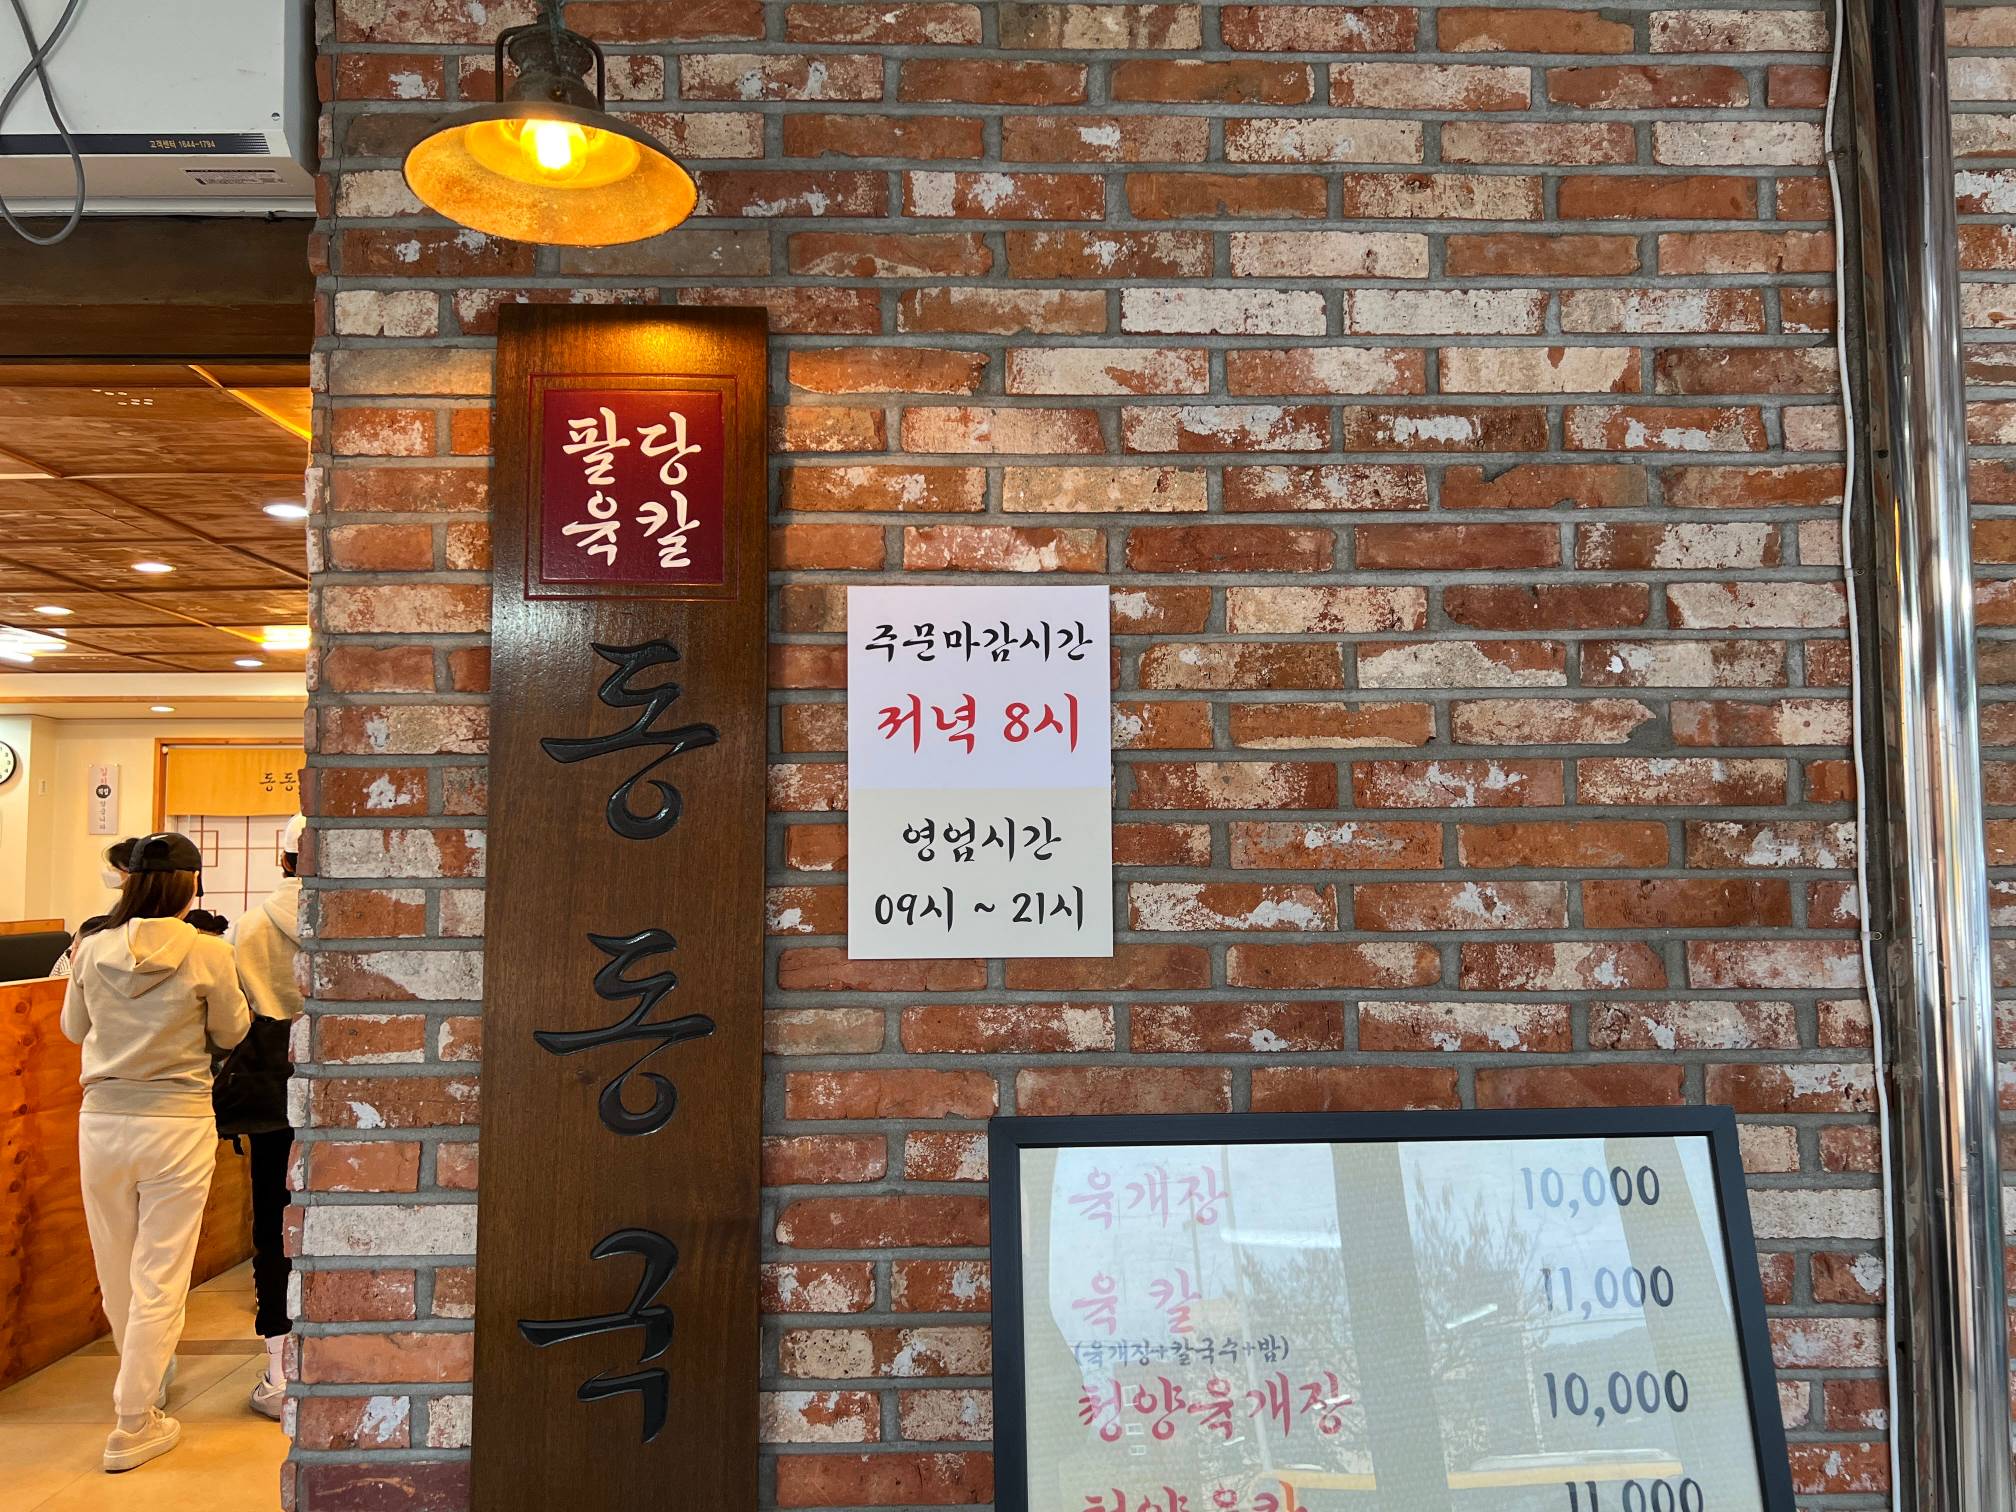 고객센터 1644-1794
팔당
육칼
동동국
주문마감시간
저녁 8시
영업시간
09시 ~ 21시
동동
육개장 10,000
육칼 11,000
(육개장+칼국수+밥)
청양육개장 10,000
청양육칼 11,000